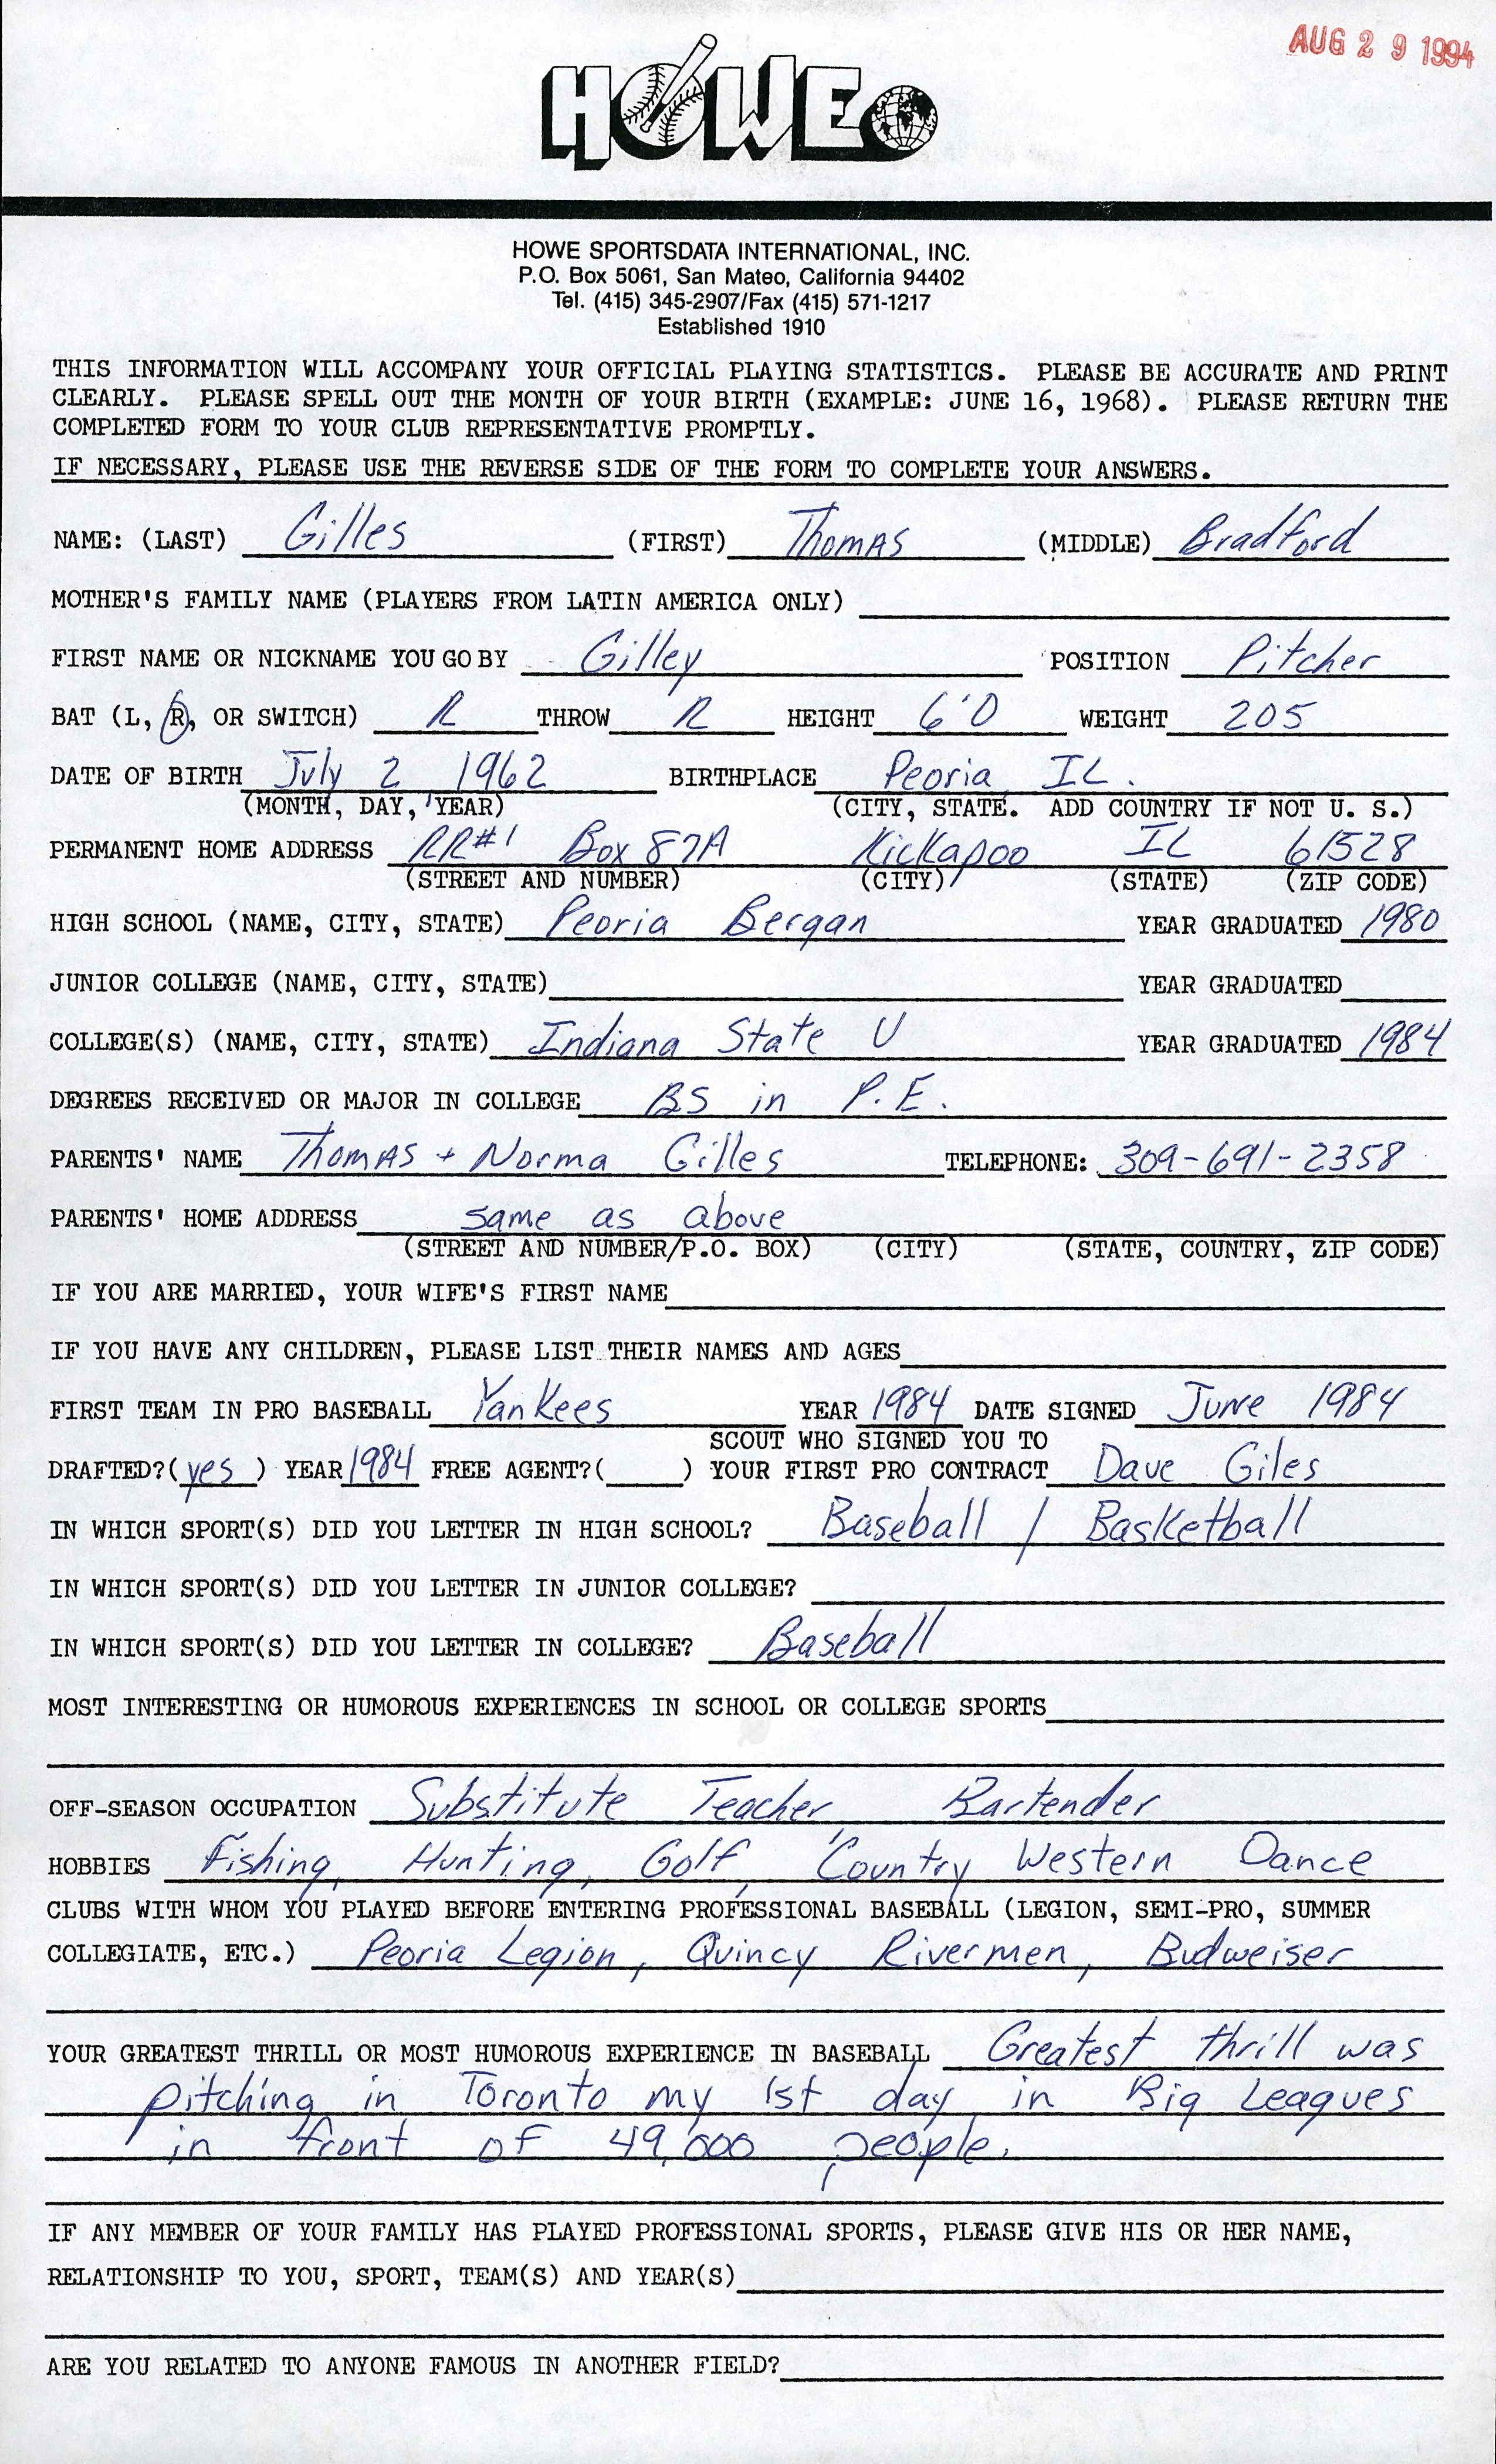 AUG 2 9 1994
HOWE
HOWE SPORTSDATA INTERNATIONAL, INC.
P.O. Box 5061, San Mateo, California 94402
Tel. (415) 345-2907/Fax (415) 571-1217
Established 1910
THIS INFORMATION WILL ACCOMPANY YOUR OFFICIAL PLAYING STATISTICS. PLEASE BE ACCURATE AND PRINT
CLEARLY. PLEASE SPELL OUT THE MONTH OF YOUR BIRTH (EXAMPLE: JUNE 16, 1968). PLEASE RETURN THE
COMPLETED FORM TO YOUR CLUB REPRESENTATIVE PROMPTLY.
IF NECESSARY, PLEASE USE THE REVERSE SIDE OF THE FORM TO COMPLETE YOUR ANSWERS.
NAME: (LAST) Gilles (FIRST) Thomas (MIDDLE) Bradford
MOTHER'S FAMILY NAME (PLAYERS FROM LATIN AMERICA ONLY)
FIRST NAME OR NICKNAME YOU GO BY Gilley POSITION Pitcher
BAT (L, R, OR SWITCH) R THROW R HEIGHT 6'0 WEIGHT 205
DATE OF BIRTH July 2, 1962 BIRTHPLACE Peoria, IL.
(MONTH, DAY, YEAR) (CITY, STATE. ADD COUNTRY IF NOT U. S.)
PERMANENT HOME ADDRESS RR#1 Box 87A Kickapoo IL 61528
(STREET AND NUMBER) (CITY) (STATE) (ZIP CODE)
HIGH SCHOOL (NAME, CITY, STATE) Peoria Bergan YEAR GRADUATED 1980
JUNIOR COLLEGE (NAME, CITY, STATE) YEAR GRADUATED
COLLEGE(S) (NAME, CITY, STATE) Indiana State U YEAR GRADUATED 1984
DEGREES RECEIVED OR MAJOR IN COLLEGE BS in P.E.
PARENTS' NAME Thomas + Norma Gilles TELEPHONE: 309-691-2358
PARENTS' HOME ADDRESS same as above
(STREET AND NUMBER/P.O. BOX) (CITY) (STATE, COUNTRY, ZIP CODE)
IF YOU ARE MARRIED, YOUR WIFE'S FIRST NAME
IF YOU HAVE ANY CHILDREN, PLEASE LIST THEIR NAMES AND AGES
FIRST TEAM IN PRO BASEBALL Yankees YEAR 1984 DATE SIGNED June 1984
SCOUT WHO SIGNED YOU TO
DRAFTED? (yes) YEAR 1984 FREE AGENT? ( ) YOUR FIRST PRO CONTRACT Dave Giles
IN WHICH SPORT(S) DID YOU LETTER IN HIGH SCHOOL? Baseball / Basketball
IN WHICH SPORT(S) DID YOU LETTER IN JUNIOR COLLEGE?
IN WHICH SPORT(S) DID YOU LETTER IN COLLEGE? Baseball
MOST INTERESTING OR HUMOROUS EXPERIENCES IN SCHOOL OR COLLEGE SPORTS
OFF-SEASON OCCUPATION Substitute Teacher, Bartender
HOBBIES Fishing, Hunting, Golf, Country Western Dance
CLUBS WITH WHOM YOU PLAYED BEFORE ENTERING PROFESSIONAL BASEBALL (LEGION, SEMI-PRO, SUMMER
COLLEGIATE, ETC.) Peoria Legion, Quincy Rivermen, Budweiser
YOUR GREATEST THRILL OR MOST HUMOROUS EXPERIENCE IN BASEBALL Greatest thrill was
pitching in Toronto my 1st day in Big Leagues
in front of 49,000 people.
IF ANY MEMBER OF YOUR FAMILY HAS PLAYED PROFESSIONAL SPORTS, PLEASE GIVE HIS OR HER NAME,
RELATIONSHIP TO YOU, SPORT, TEAM(S) AND YEAR(S)
ARE YOU RELATED TO ANYONE FAMOUS IN ANOTHER FIELD?